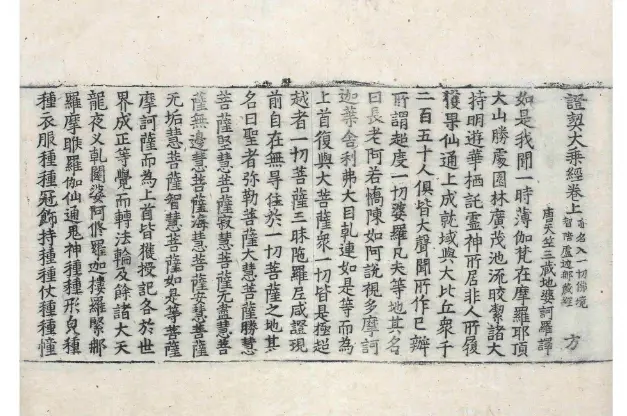 證契大乘經卷上 亦名入一切佛境
智陪盧遮那藏經 方
唐天竺三藏地婆訶羅譯
如是我聞一時薄伽梵在摩羅耶頂
大山勝處園林廣茂池流皎潔諸大
持明遊華栖託靈神所居非人所履
獲果仙通上成就域與大比丘衆千
二百五十人俱皆大聲聞所作已辦
所謂超度一切婆羅凡夫等地其名
曰長老阿若憍陳如說視多摩訶
迦葉舍利弗大目乹連如是等而為
上首復與大菩薩衆一切皆是極超
越者一切菩薩三昧陁羅尼咸證現
前自在無㝵住於一切菩薩之地其
名曰聖者弥勒菩薩大慧菩薩勝慧
菩薩堅慧菩薩寂慧菩薩无盡慧菩
薩無邊慧菩薩海慧菩薩安慧菩薩
无垢慧菩薩智慧菩薩如是等菩薩
摩訶薩而為上首皆獲授記各於世
界成正等覺而轉法輪及餘諸大天
龍夜叉乹闥婆阿修羅迦樓羅緊那
羅摩睺羅伽仙通鬼神種種形皃種
種衣服種種冠飾持種種仗種種幢